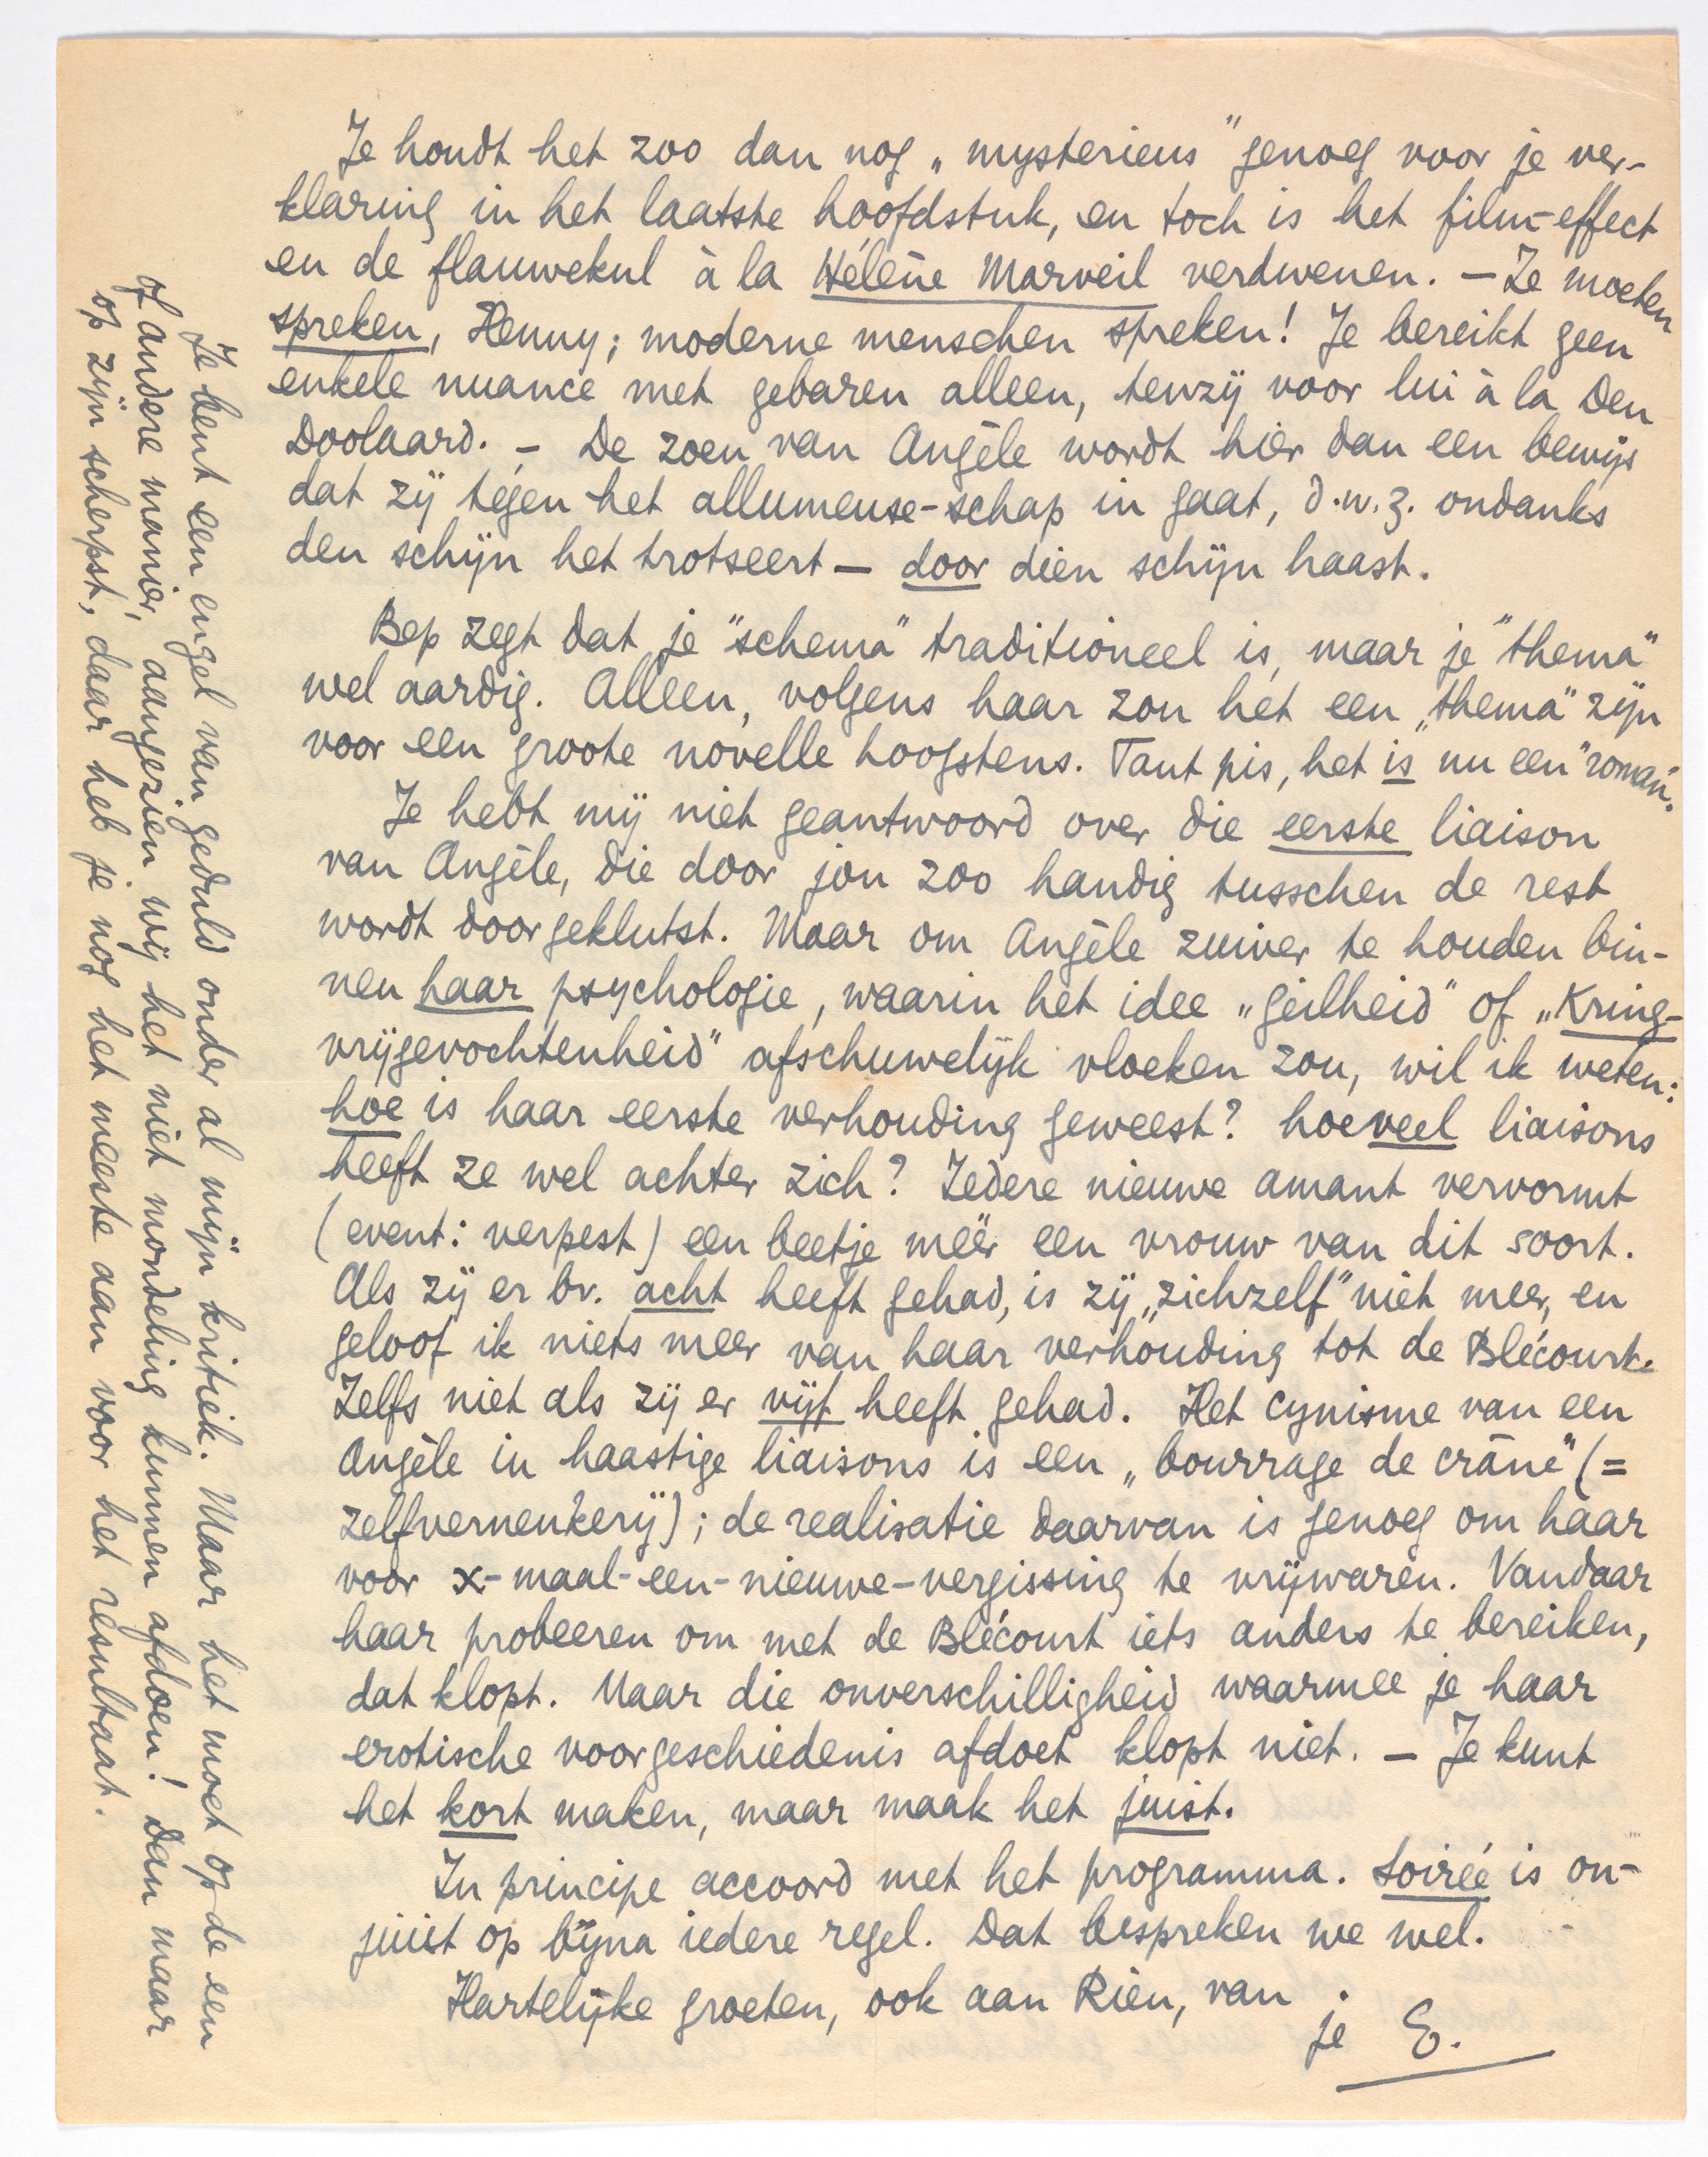 Je houdt het zoo dan nog „mysterieus" genoeg voor je ver-
klaring in het laatste hoofdstuk, en toch is het film-effect
en de flauwekul à la Hélène Marveil verdwenen. — Ze moeten
spreken, Henny; moderne menschen spreken! Je bereikt geen
enkele nuance met gebaren alleen, tenzij voor lui à la Den
Doolaard. – De zoen van Angèle wordt hier dan een bewijs
dat zij tégen het allumeuse-schap in gaat, d.w.z. ondanks
den schijn het trotseert — door dien schijn haast.
Bep zegt dat je "schema" traditioneel is, maar je "thema"
wel aardig. Alleen, volgens haar zou het een „thema" zijn
voor een groote novelle hoogstens. Tant pis, het is nu een "roman".
Je hebt mij niet geantwoord over die eerste liaison
van Angèle, die door jou zoo handig tusschen de rest
wordt doorgeklutst. Maar om Angèle zuiver te houden bin-
nen haar psychologie, waarin het idee „geilheid" of „Kring-
vrijgevochtenheid" afschuwelijk vloeken zou, wil ik weten:
hoe is haar eerste verhouding geweest? hoeveel liaisons
heeft ze wel achter zich? Iedere nieuwe amant vervormt
(event: verpest) een beetje méér een vrouw van dit soort.
Als zij er bv. acht heeft gehad, is zij „zichzelf" niet meer, en
geloof ik niets meer van haar verhouding tot de Blécourt.
Zelfs niet als zij er vijf heeft gehad. Het cynisme van een
Angèle in haastige liaisons is een „bourrage de crâne" (=
zelfverneukerij); de realisatie daarvan is genoeg om haar
voor x-maal-een-nieuwe-vergissing te vrijwaren. Vandaar
haar probeeren om met de Blécourt iets anders te bereiken,
dat klopt. Maar die onverschilligheid waarmee je haar
erotische voorgeschiedenis afdoet klopt niet. — Je kunt
het kort maken, maar maak het juist.
In principe accoord met het programma. Soirée is on-
juist op bijna iedere regel. Dat bespreken we wel.
Hartelijke groeten, ook aan Rien, van
je E.
Je bent een engel van geduld onder al mijn kritiek. Maar het moet op de een
of andere manier, aangezien wij het niet mondeling kunnen afdoen! Dan maar
op zijn scherpst, daar heb je nog het meeste aan voor het resultaat.